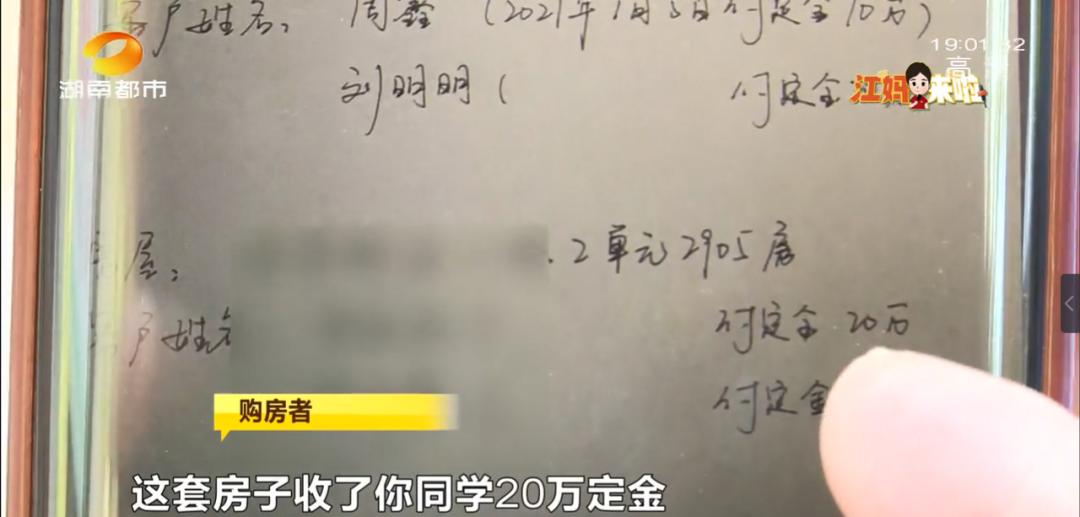 客户姓名: 周鑫 (2021年1月3日付定金10万)
19:01:32
高
湖南都市
江妈来啦
刘明明 ( 付定金
房屋: . 2单元2905房
客户姓名 付定金20万
付定金
购房者
这套房子收了你同学20万定金